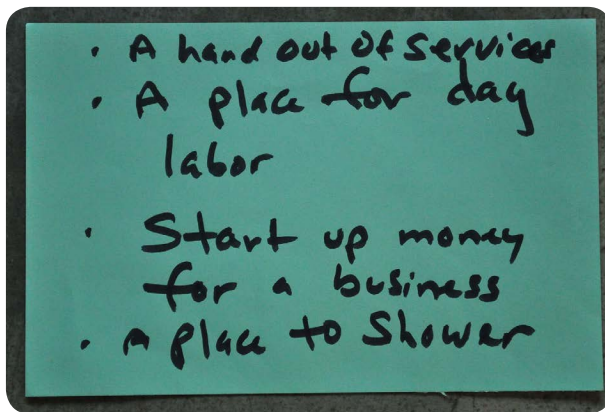 · A hand out of services
· A place for day
labor
· Start up money
for a business
· A place to Shower